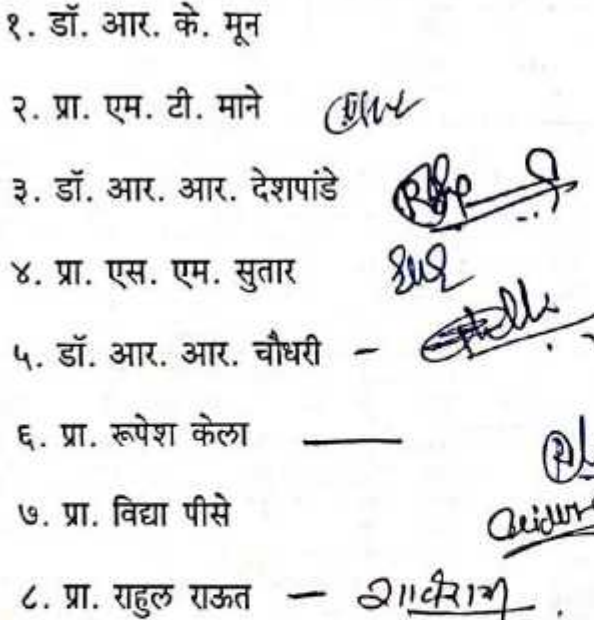 १. डॉ. आर. के. मून
२. प्रा. एम. टी. माने
३. डॉ. आर. आर. देशपांडे
४. प्रा. एस. एम. सुतार
५. डॉ. आर. आर. चौधरी -
६. प्रा. रूपेश केला —
७. प्रा. विद्या पीसे
८. प्रा. राहुल राऊत —